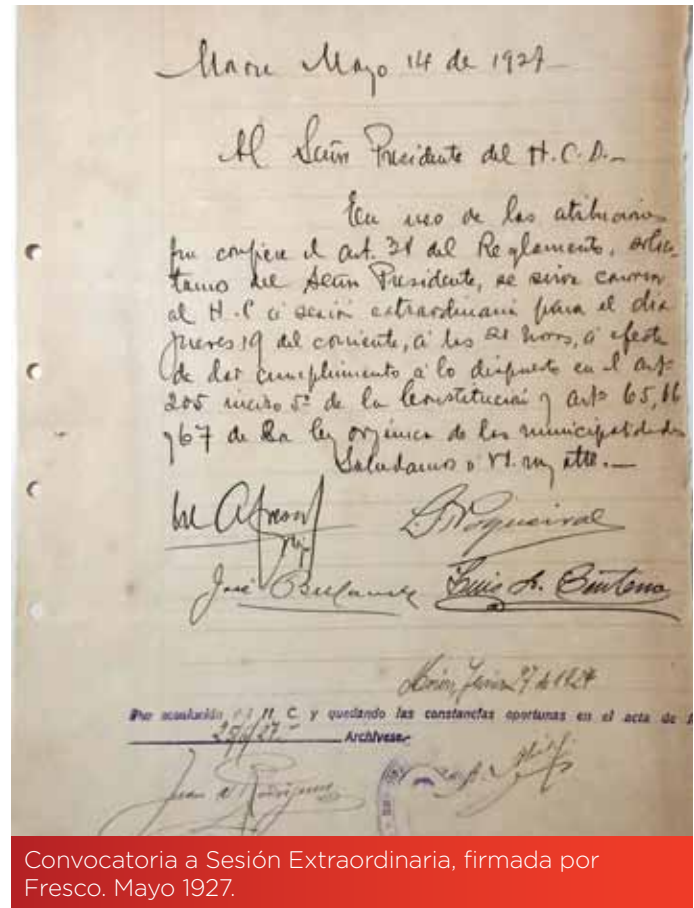 Mayo 14 de 1927
Al Señor Presidente del H.C.D.
En uso de las atribuciones
que confiere el art. 31 del Reglamento, solici-
tamos del Señor Presidente, se sirva convocar
al H.C a sesión extraordinaria para el día
jueves 19 del corriente, á las 21 horas, á efecto
de dar cumplimiento a lo dispuesto en el art°
205 inciso 5° de la Constitución y arts 65, 66
y 67 de la ley orgánica de las municipalidades
Saludamos a Vd. muy atte.
José
Luis
de 1927
Por resolución del H. C. y quedando las constancias oportunas en el acta de
Archívese.
Juan Rodríguez
Convocatoria a Sesión Extraordinaria, firmada por
Fresco. Mayo 1927.